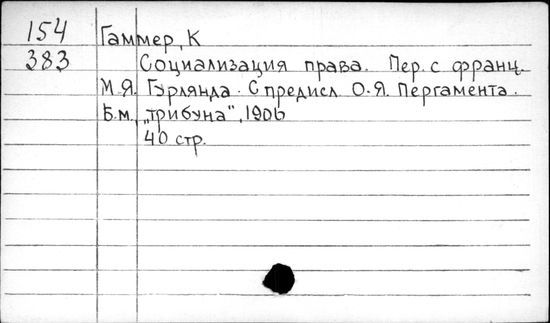 154 Гаммер, К
383 Социализация права. Пер. с франц.
М.Я. Гурлянда. С предисл О.Я. Пергамента.
Б.м. „трибуна", 1906
40 стр.